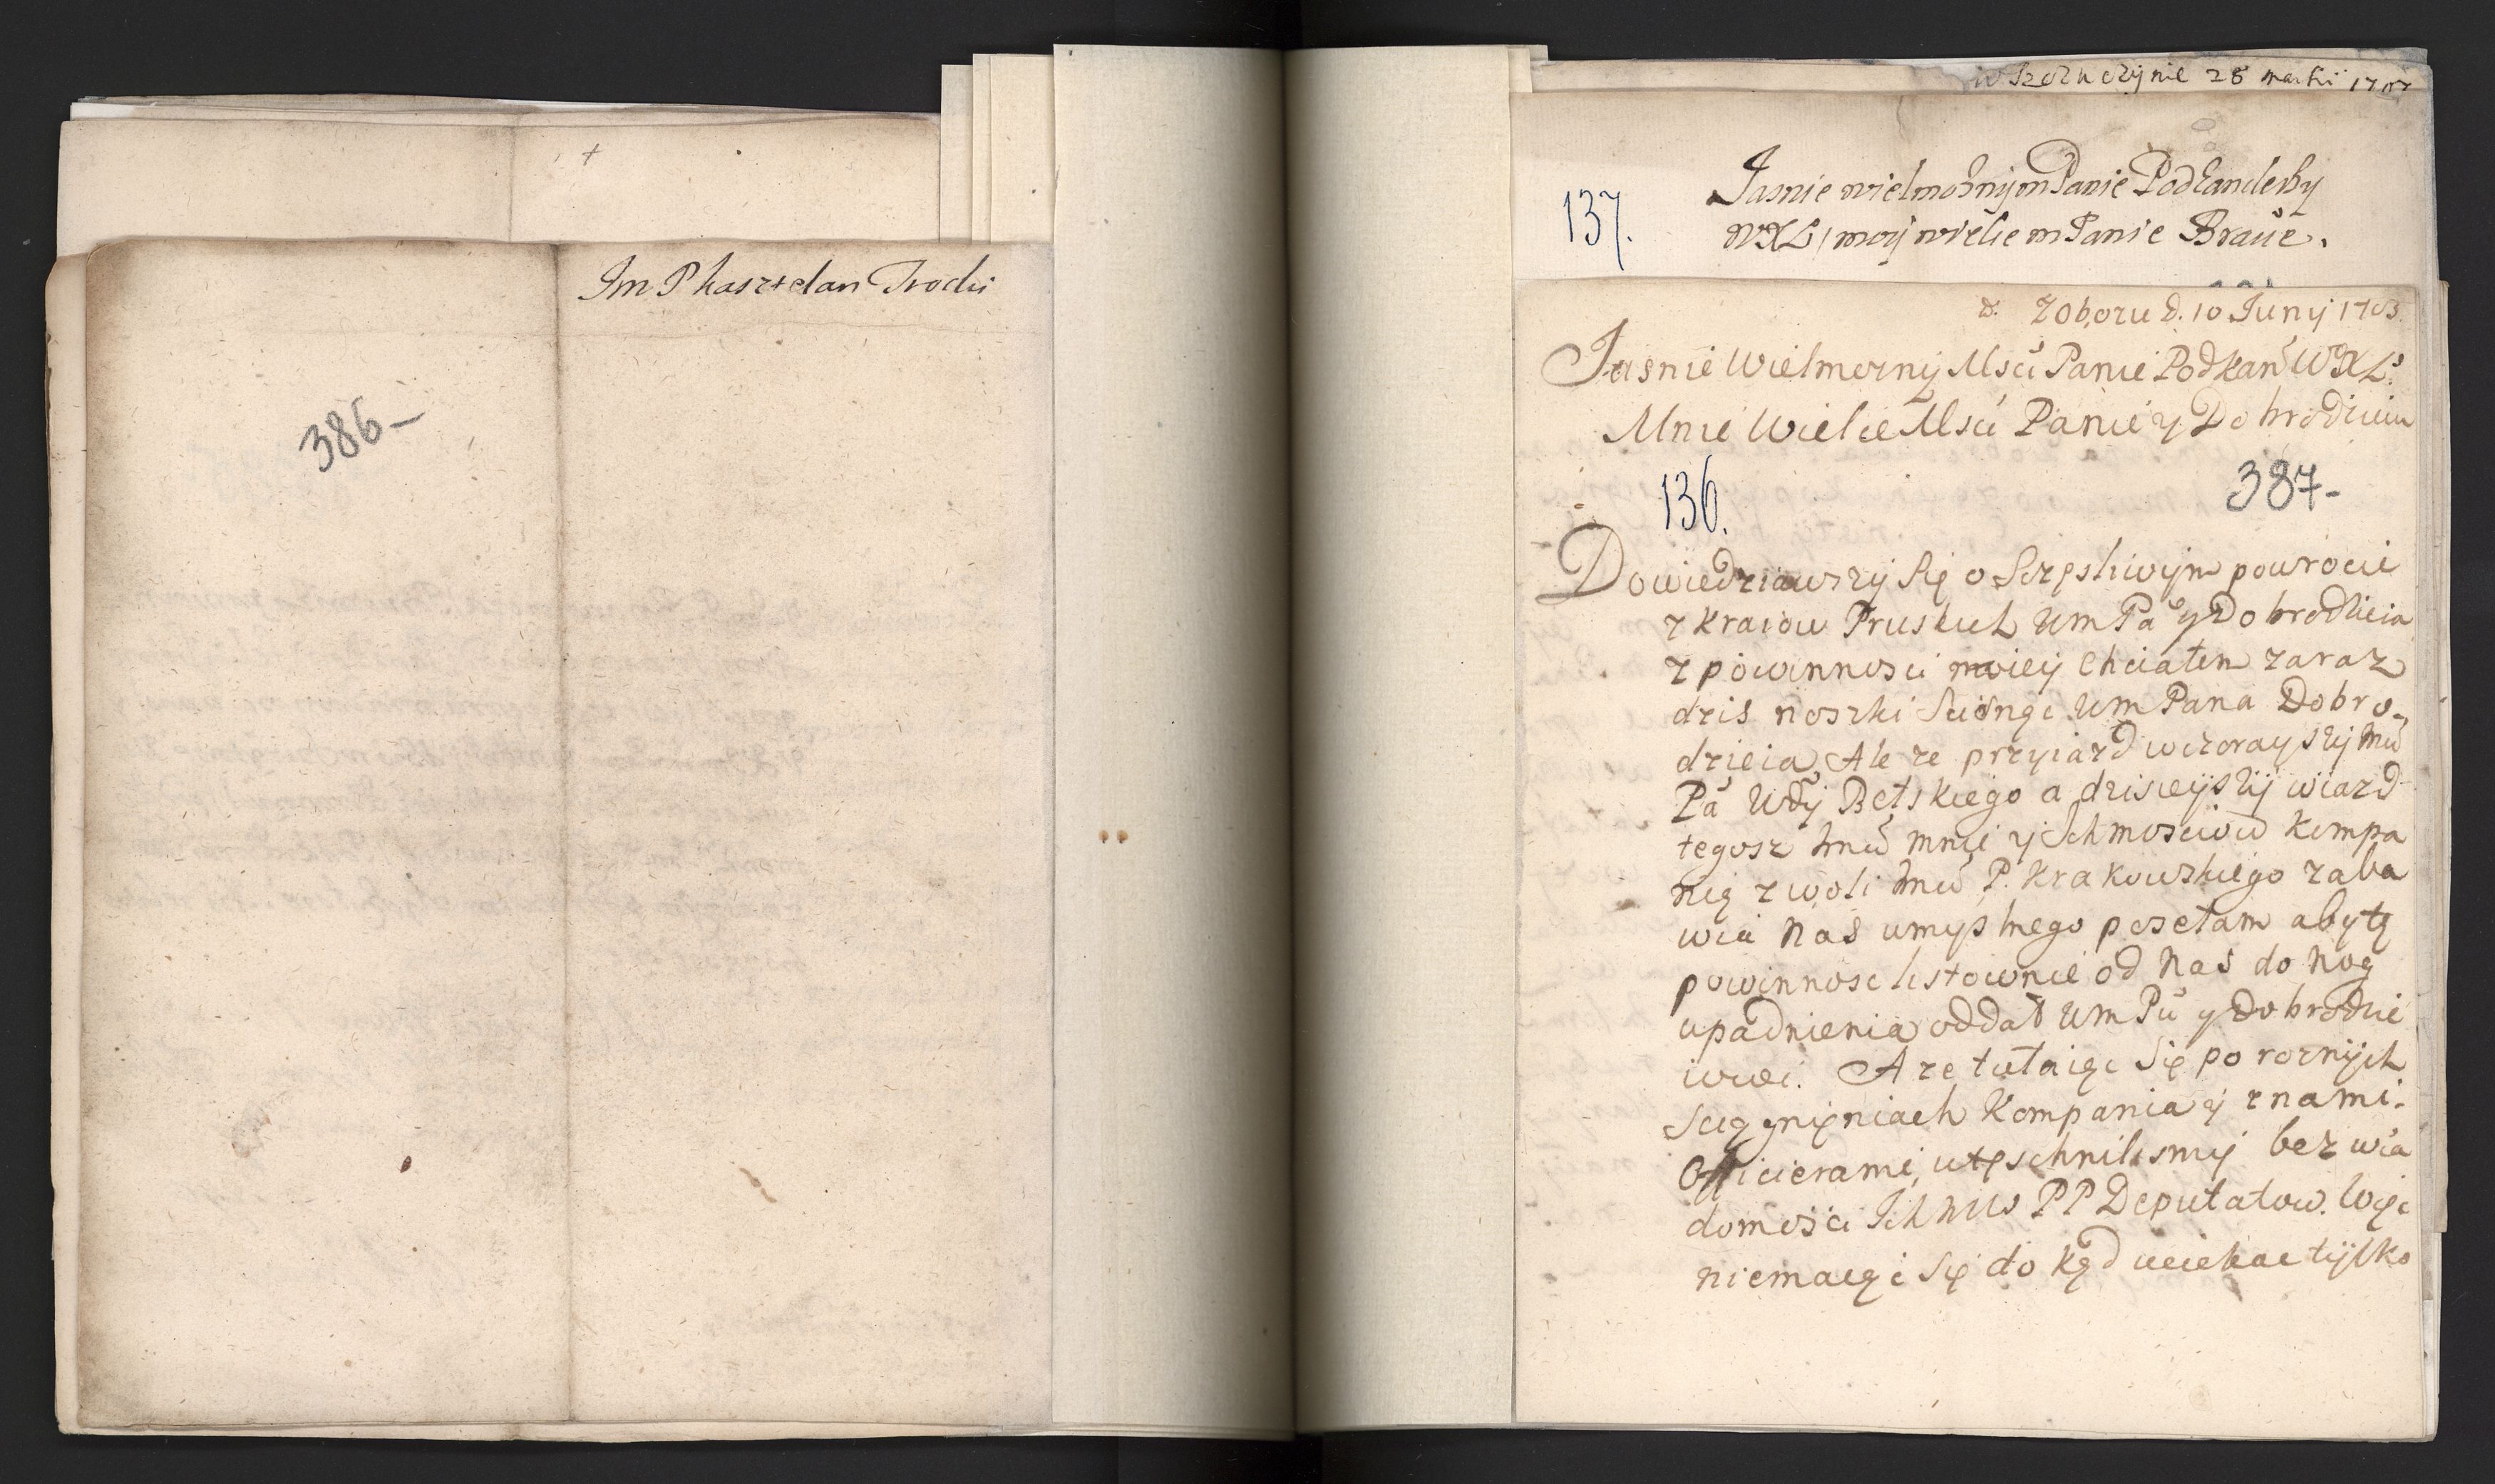 Im P kasztelan Trocki
386-
w Szczuczynie 28 martii 1707
137.
Jasnie wielmożnym Panie Podkanclerzy
WXL, moy wielce m Panie Bracie.
d. Zoboru d. 10 Juny 1703
Jasnie Wielmozny Msci Panie Podkan WXL.
Mnie Wielce Msci Panie y Dobrodzieiu
136.
387-
Dowiedziawszy Się o Sczęsliwym powrocie
z Kraiow Pruskich UmPa y Dobrodzieia
z powinnosci moiey Chciałem zaraz
dzis noszki Scisnąc Um Pana Dobro-
dzieia, Ale ze przyiazd wczorayszy Jmci
Pa Wdy Bełskiego a dzisieyszy wiazd
tegosz Jmci mnie y Ichmosciow kompa
nię z woli Jmci P. Krakowskiego zaba
wia Nas umyslnego posełam aby tę
powinnosc listownie od Nas do Nog
upadnienia oddał Um Pu y Dobrodzie
iowi. A ze tułaiąc Się po roznych
Sciągnięniach Kompania y z nami.
Officierami, utęschnilismy bez wia
domosci Ichmcw PP Deputatow. Więc
niemaiąc Się do kąd uciekac tylko